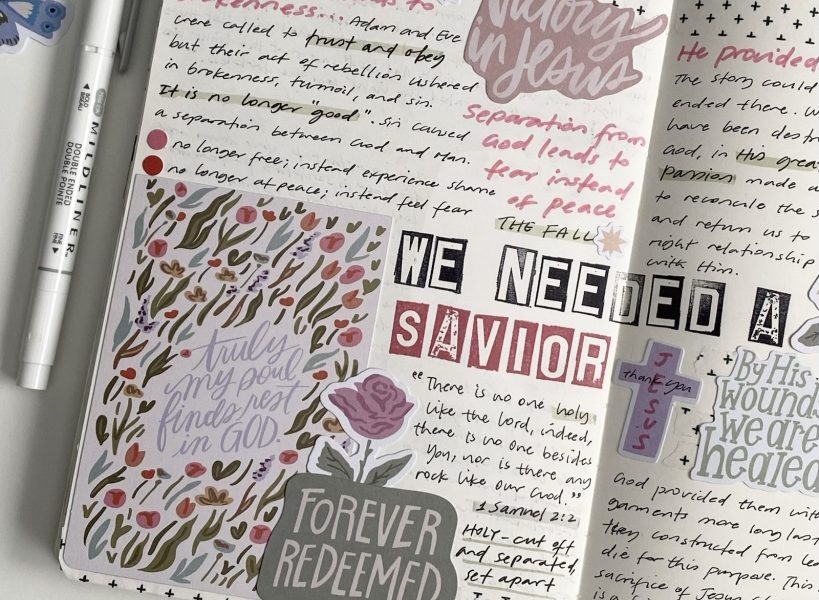 MILDLINER
DOUBLE ENDED
DOUBLE POINTE
BOLD
BISEAU
FINE
FINE
leads to
brokenness... Adam and Eve
were called to trust and obey
but their act of rebellion ushered
in brokenness, turmoil, and sin.
It is no longer "good". Sin caused
a separation between God and Man.
no longer free; instead experience shame
no longer at peace; instead feel fear
Victory
in Jesus
Separation from
God leads to
fear instead
of peace
THE FALL
WE NEEDED A
SAVIOR
truly
my soul
finds rest
in GOD.
FOREVER
REDEEMED
"There is no one holy
like the Lord, indeed,
there is no one besides
You, nor is there any
rock like our God."
1 Samuel 2:2
HOLY - cut off
and separated,
set apart
He provided
The story could
ended there. W
have been destr
God, in His grea
passion made a
to reconcile the s
and return us to
right relationship
with Him.
JESUS
thank you
By His
wounds
we are
healed
God provided them with
garments more long last
they constructed from lea
die for this purpose. This
sacrifice of Jesus
is a